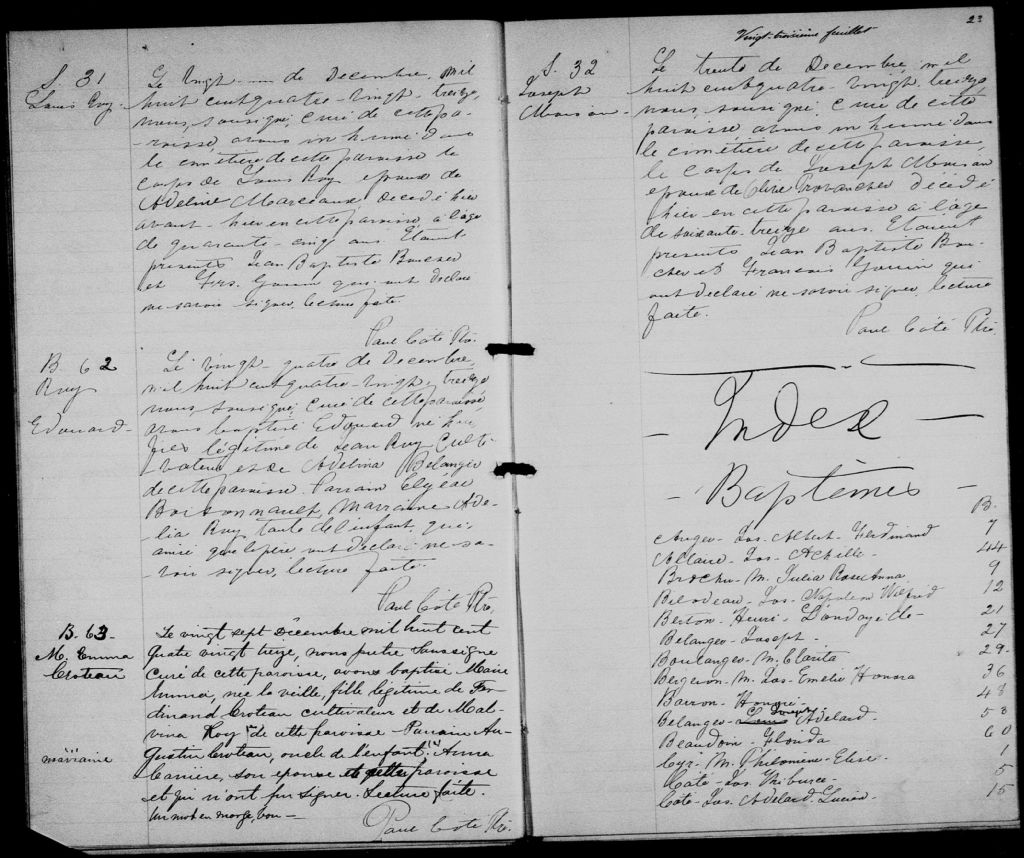 S. 31
Louis Roy
Le vingt de Decembre, mil
huit cent quatre-vingt treize,
nous, sousigné, curé de cette pa-
-roisse, avons inhumé dans
le cimétière de cette paroisse le
corps de Louis Roy epoux de
Adeline Marceaux decedé hier
avant-hier en cette paroisse a l'age
de quarante-cinq ans. Etaient
presents Jean Baptiste Boucher
et Frs. Gouin qui ont declaré
ne savoir signer, lecture faite.
Paul Côté Ptr.
B 62
Roy
Edouard
Le vingt-quatre de Decembre,
mil huit cent quatre-vingt, treize
nous sousigné, curé de cette paroisse,
avons baptisé Edouard né hier
fils légitime de Jean Roy Culti-
vateur et de Adelina Belanger
de cette paroisse. Parrain Elzéar
Marraine Adé-
lia Roy tante de l'enfant, qui
ainsi que le père ont declaré ne sa-
-voir signer, lecture faite.
Paul Côté Ptr,
B. 63
M. Emma
Croteau
Le vingt sept Décembre mil huit cent
quatre vingt treize, nous pretre soussigné
curé de cette paroisse, avons baptisé Marie
Emma, née la veille, fille légitime de Fer-
dinand Croteau cultivateur et de Mal-
vina Roy de cette paroisse - Parrain Au-
gustin Croteau, oncle de l'enfant, Anna
marraine
son epouse de cette paroisse
et qui n'ont pu signer. Lecture faite.
Un mot en marge, bon —
Paul Côté Ptr.
23
Vingt-troisième feuillet
S. 32
Joseph
Moison
Le trente de Decembre, mil
huit cent quatre-vingt, treize,
nous, sousigné, curé de cette
paroisse avons inhumé dans
le cimétière de cette paroisse,
le corps de Joseph Moison
epoux de Provancher décédé
hier en cette paroisse a l'age
de soixante-treize ans. Etaient
presents Jean Baptiste Bou-
cher et Francois Gouin qui
ont declaré ne savoir signer, lecture
faite.
Paul Côté Ptr.
- Index -
- Baptêmes -
B.
Auger - Jos. Albert - Ferdinand 7
Allaire - Jos - Achille - 44
Brochu - M. Julia Rose Anna 9
Bilodeau - Jos - Napoleon Wilfrid 12
Berton - Henri - 21
Belanger - Joseph - 27
Boulanger - M. Clarita 29 -
Bergeron - M. Jos - Emelie Honora 36
Barron - Honoré - 48
Belanger - Joseph Adelard - 53
Beaudoin - Florida 60
Cyr - M. Philomene - Elise - 1
Coté - Jos. Tiburce - 5
Coté - Jos. Adelard Lucien - 15